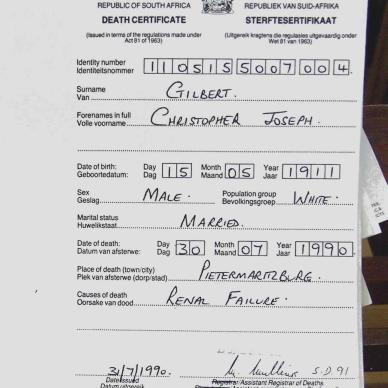 REPUBLIC OF SOUTH AFRICA REPUBLIEK VAN SUID-AFRIKA
DEATH CERTIFICATE STERFTESERTIFIKAAT
(Issued in terms of the regulations made under (Uitgereik kragtens die regulasies uitgevaardig onder
Act 81 of 1963) Wet 81 van 1963)
Identity number
Identiteitsnommer 1105155007004
Surname
Van GILBERT.
Forenames in full
Volle voorname CHRISTOPHER JOSEPH.
Date of birth: Day Month Year
Geboortedatum: Dag 15 Maand 05 Jaar 1911
Sex Population group
Geslag MALE. Bevolkingsgroep WHITE.
Marital status
Huwelikstaat MARRIED.
Date of death: Day Month Year
Datum van afsterwe: Dag 30 Maand 07 Jaar 1990
Place of death (town/city)
Plek van afsterwe (dorp/stad) PIETERMARITZBURG.
Causes of death
Oorsake van dood RENAL FAILURE.
31/7/1990. S.D.91
Date issued Registrar/Assistant Registrar of Deaths
Datum uitgereik